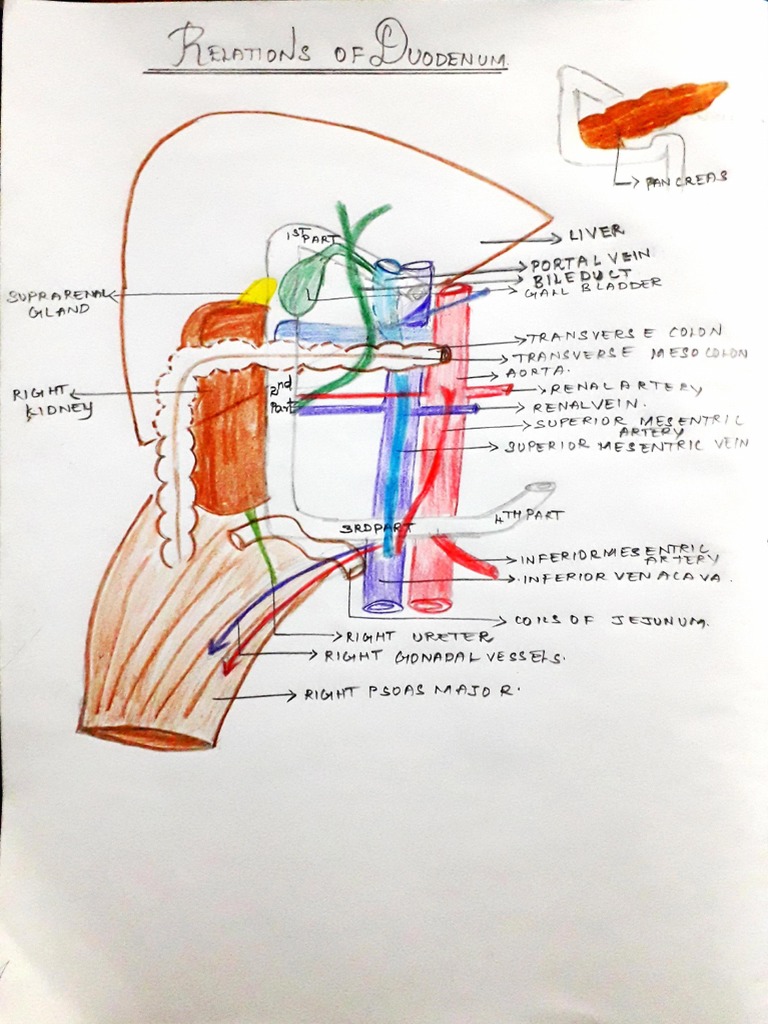 RELATIONS OF DUODENUM.
PANCREAS
1ST PART
LIVER
PORTAL VEIN
BILE DUCT
GALL BLADDER
SUPRARENAL
GLAND
TRANSVERSE COLON
TRANSVERSE MESOCOLON
AORTA.
RIGHT
KIDNEY
2nd
Part
RENAL ARTERY
RENAL VEIN.
SUPERIOR MESENTRIC
ARTERY
SUPERIOR MESENTRIC VEIN
3RD PART
4TH PART
INFERIOR MESENTRIC
ARTERY
INFERIOR VENACAVA.
COILS OF JEJUNUM.
RIGHT URETER
RIGHT GONADAL VESSELS.
RIGHT PSOAS MAJOR.